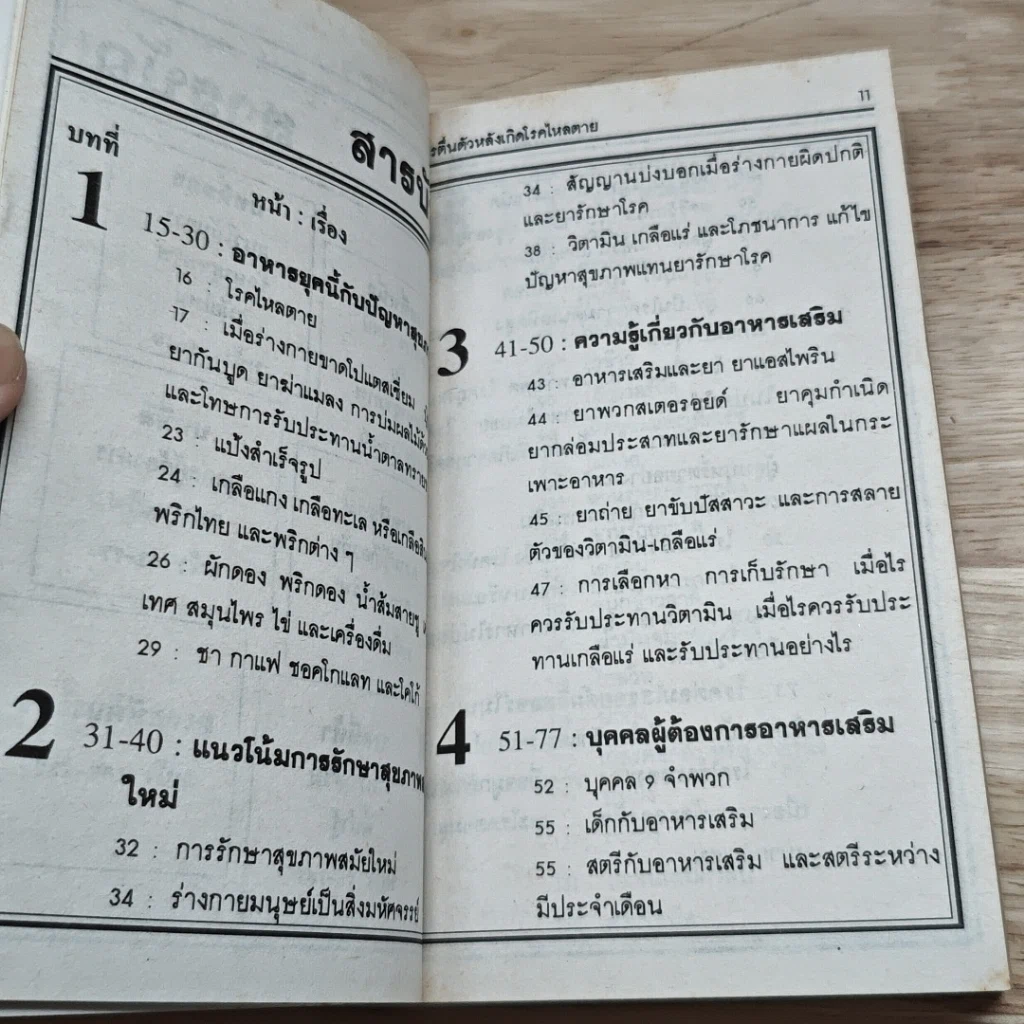 บทที่
หน้า : เรื่อง
1
15-30 : อาหารยุคนี้กับปัญหา
16 : โรคไหลตาย
17 : เมื่อร่างกายขาดโปแตสเซี่ยม
ยากันบูด ยาฆ่าแมลง การบ่มผลไม้
และโทษการรับประทานน้ำตาลทราย
23 : แป้งสำเร็จรูป
24 : เกลือแกง เกลือทะเล หรือเกลือ
พริกไทย และพริกต่าง ๆ
26 : ผักดอง พริกดอง น้ำส้มสายชู
เทศ สมุนไพร ไข่ และเครื่องดื่ม
29 : ชา กาแฟ ชอคโกแลท และโคโก้
2
31-40 : แนวโน้มการรักษาสุขภาพ
ใหม่
32 : การรักษาสุขภาพสมัยใหม่
34 : ร่างกายมนุษย์เป็นสิ่งมหัศจรรย์
11
34 : สัญญานบ่งบอกเมื่อร่างกายผิดปกติ
และยารักษาโรค
38 : วิตามิน เกลือแร่ และโภชนาการ แก้ไข
ปัญหาสุขภาพแทนยารักษาโรค
3
41-50 : ความรู้เกี่ยวกับอาหารเสริม
43 : อาหารเสริมและยา ยาแอสไพริน
44 : ยาพวกสเตอรอยด์ ยาคุมกำเนิด
ยากล่อมประสาทและยารักษาแผลในกระ
เพาะอาหาร
45 : ยาถ่าย ยาขับปัสสาวะ และการสลาย
ตัวของวิตามิน-เกลือแร่
47 : การเลือกหา การเก็บรักษา เมื่อไร
ควรรับประทานวิตามิน เมื่อไรควรรับประ
ทานเกลือแร่ และรับประทานอย่างไร
4
51-77 : บุคคลผู้ต้องการอาหารเสริม
52 : บุคคล 9 จำพวก
55 : เด็กกับอาหารเสริม
55 : สตรีกับอาหารเสริม และสตรีระหว่าง
มีประจำเดือน